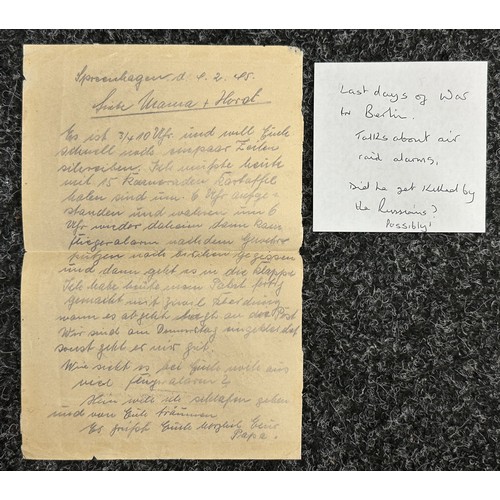 Spreenhagen d. 9.2.45.
Liebe Mama + Horst
Es ist 3/4 10 Uhr und will Euch
schnell noch ein paar Zeilen
schreiben. Ich mußte heute
mit 15 Kameraden Kartoffel
holen sind um 6 Uhr aufge-
standen und waren um 6
Uhr wieder daheim dann kam
Fliegeralarm nach dem Gewehr
putzen noch bischen gegessen
und dann geht es in die Klappe
Ich habe heute mein Paket fertig
gemacht mit
wann es abgeht liegt an der Post
Wir sind am Donnerstag
sonst geht es mir gut.
Wie sieht es bei Euch noch aus
viel Fliegeralarm?
Nun will ich schlafen gehen
und von Euch träumen
Es grüßt Euch herzlich Euer
Papa.
Last days of War
in Berlin.
Talks about air
raid alarms,
Did he get killed by
the Russians?
Possibly!